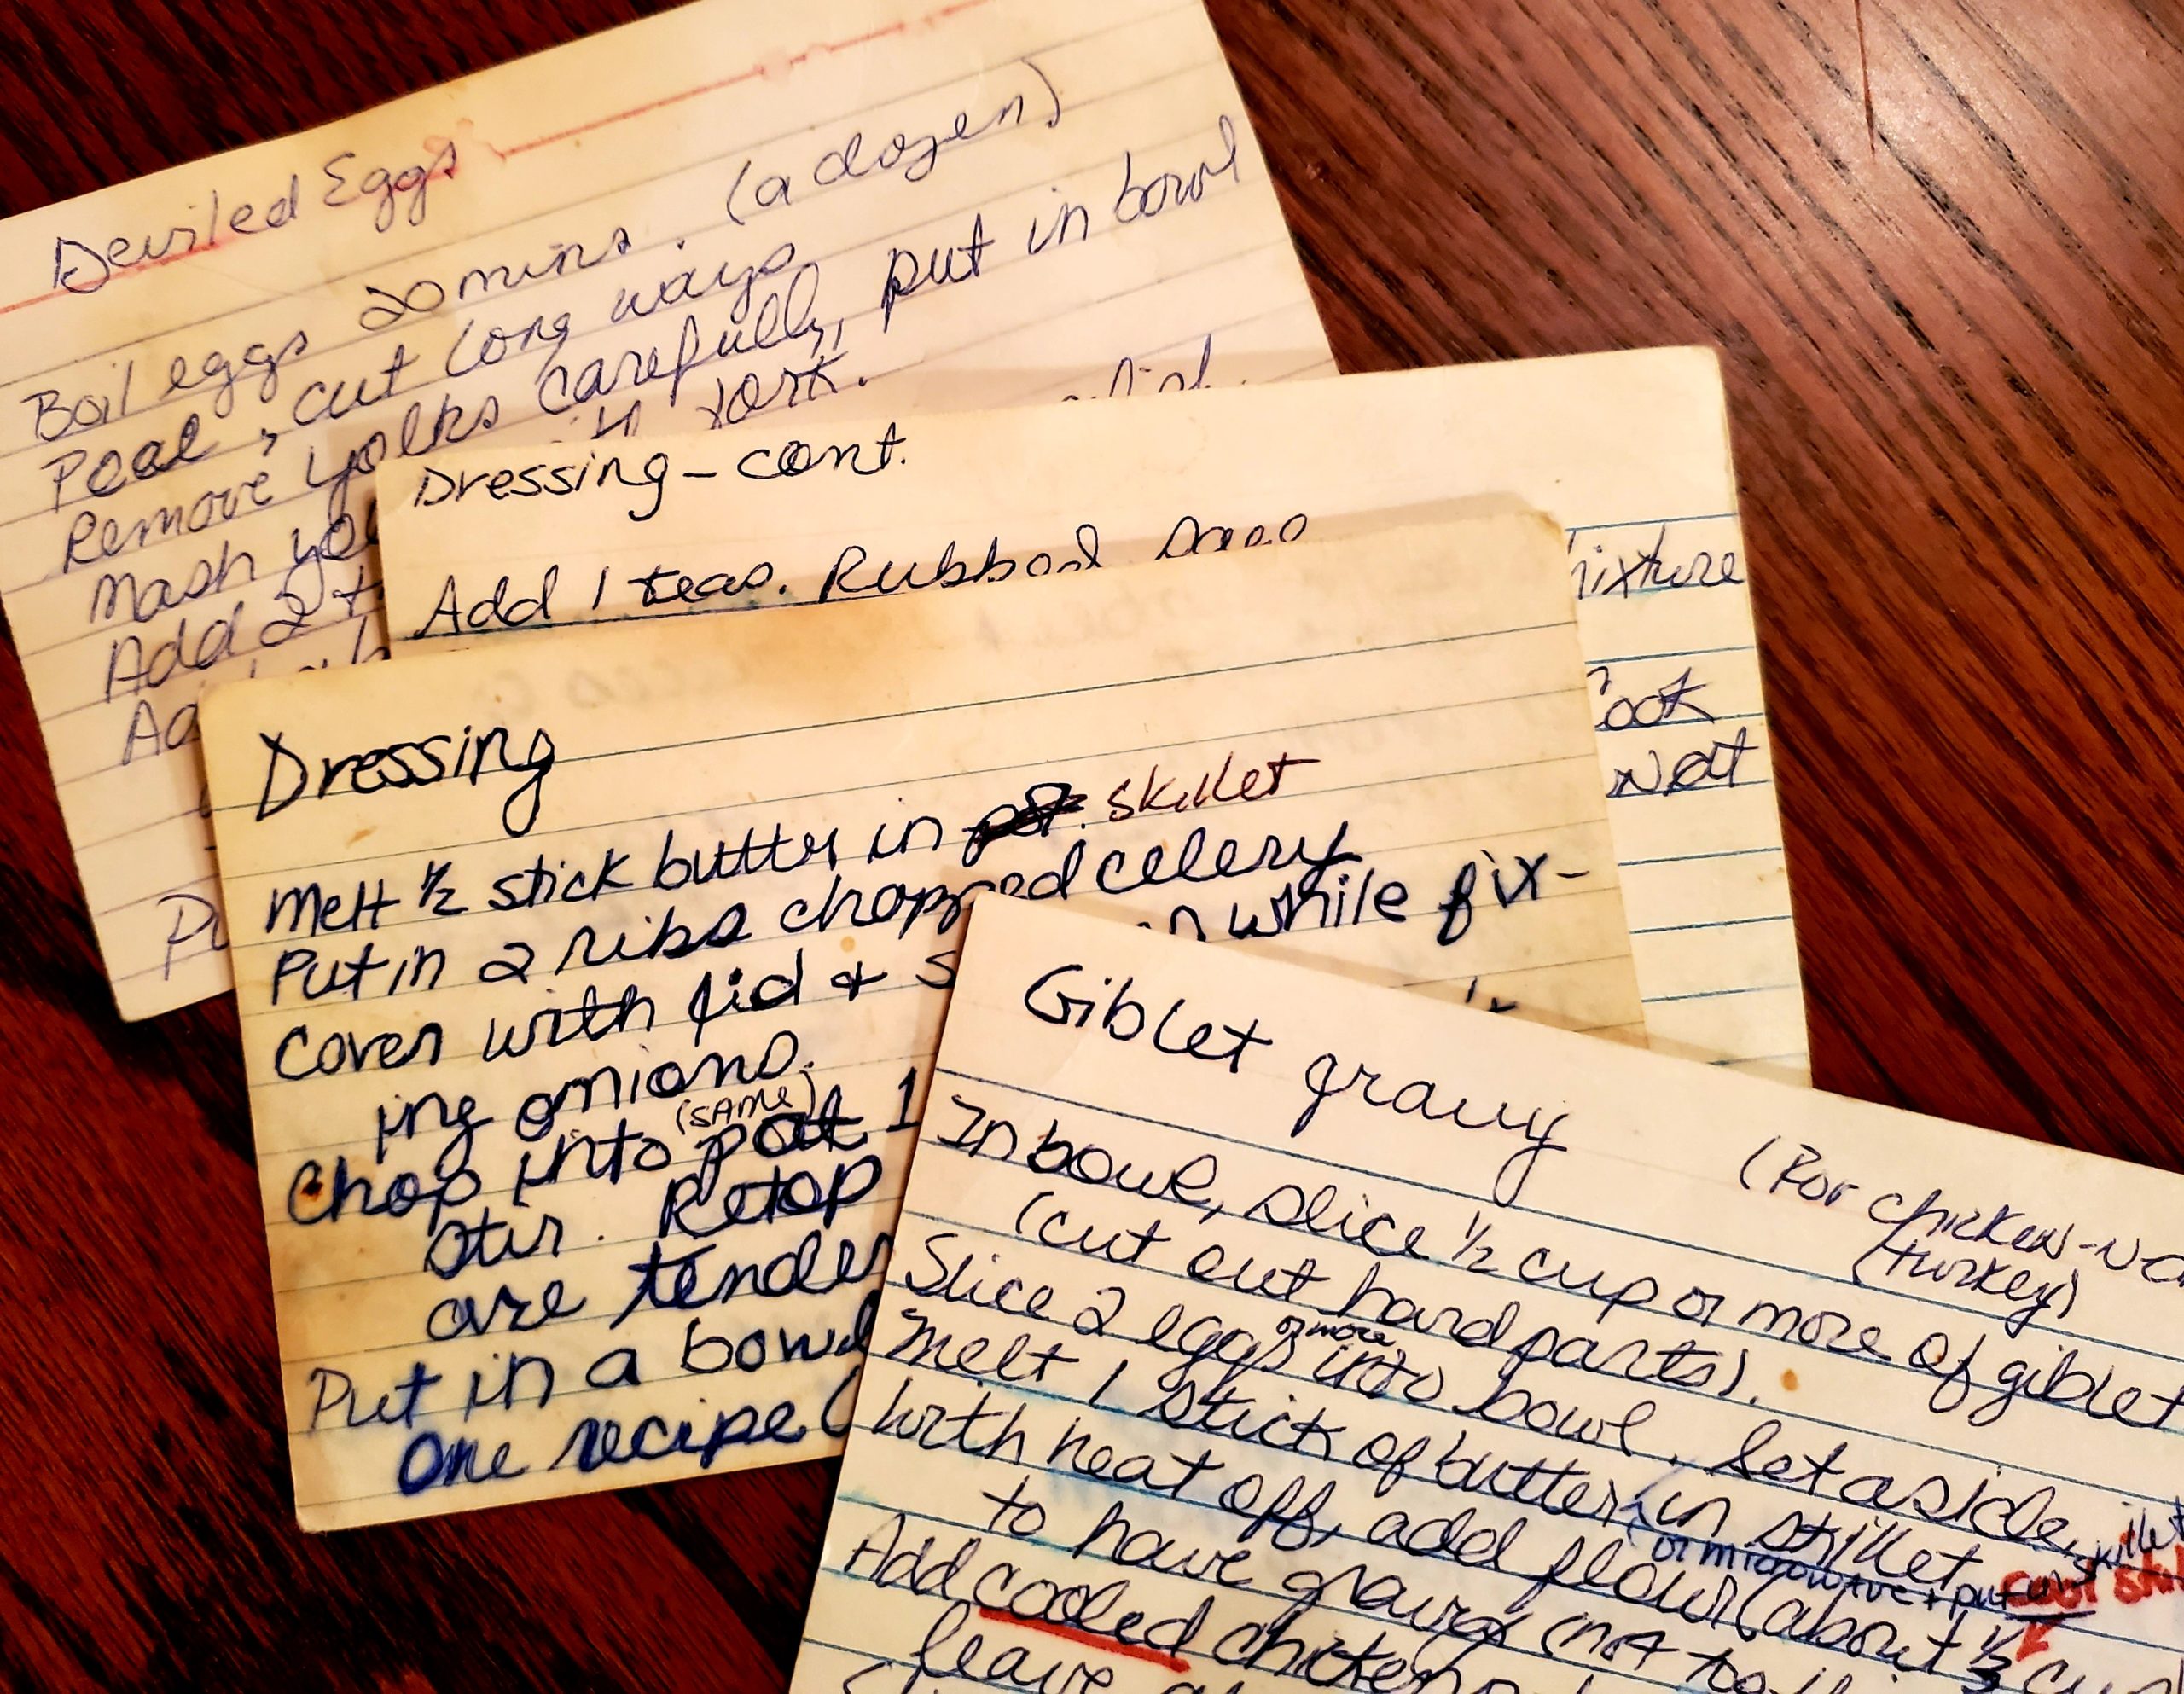 Deviled Eggs
Boil eggs 20 mins. (a dozen)
Peal, cut long ways
Remove yolks carefully, put in bowl
Mash
Add 2
Dressing - cont.
Add 1 teas. Rubbed Sage
Cook
Not
Dressing
Melt 1/2 stick butter in pot. skillet
Put in 2 ribs chopped celery
Cover with lid + while fix-
ing onions.
(SAME)
Chop into pot 1
Stir. Retop
are tender
Put in a bowl
One recipe (
Giblet gravy
(For chicken-
(turkey)
In bowl, slice 1/2 cup or more of giblet
(cut out hard parts).
Slice 2 eggs or more into bowl. Set aside.
Melt 1 stick of butter in skillet
(or microwave + put in skillet
cool
With heat off, add flour (about 1/3
to have gravy (not too
Add cooled chicken
leave